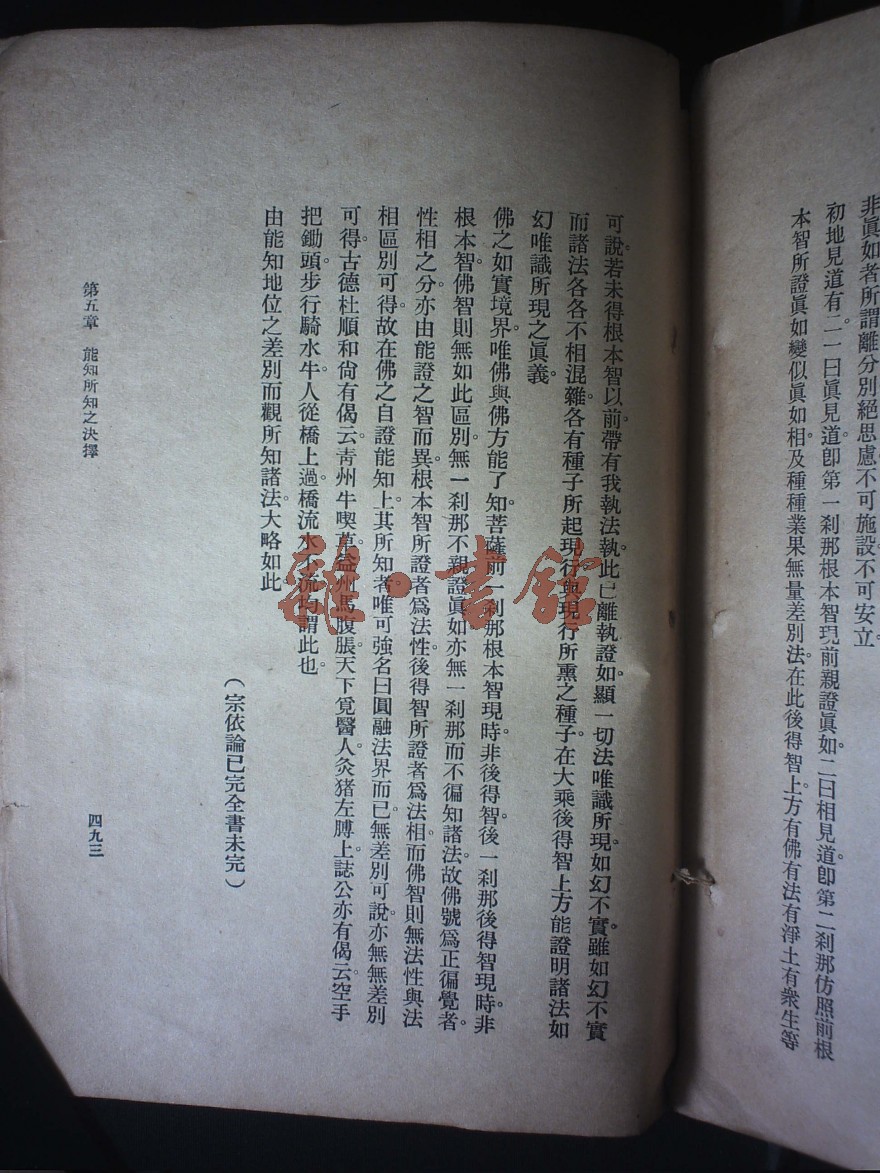 非眞如者所謂離分別絕思慮不可施設不可安立。
初地見道有二一曰眞見道卽第一刹那根本智現前親證眞如二曰相見道卽第二刹那仿照前根
本智所證眞如變似眞如相及種種業果無量差別法在此後得智上方有佛有法有淨土有衆生等
可說若未得根本智以前帶有我執法執此已離執證如顯一切法唯識所現如幻不實雖如幻不實
而諸法各各不相混雜各有種子所起現行與現行所熏之種子在大乘後得智上方能證明諸法如
幻唯識所現之眞義。
佛之如實境界唯佛與佛方能了知菩薩前一刹那根本智現時非後得智後一刹那後得智現時非
根本智佛智則無如此區別無一刹那不親證眞如亦無一刹那而不徧知諸法故佛號爲正徧覺者。
性相之分亦由能證之智而異根本智所證者爲法性後得智所證者爲法相而佛智則無法性與法
相區別可得故在佛之自證能知上其所知者唯可強名曰圓融法界而已無差別可說亦無無差別
可得。古德杜順和尙有偈云靑州牛喫草益州馬腹脹天下覓醫人灸猪左膊上誌公亦有偈云空手
把鋤頭步行騎水牛人從橋上過橋流水不流均謂此也。
由能知地位之差別而觀所知諸法大略如此。
(宗依論已完全書未完)
第五章 能知所知之決擇
四九三
雜·書館